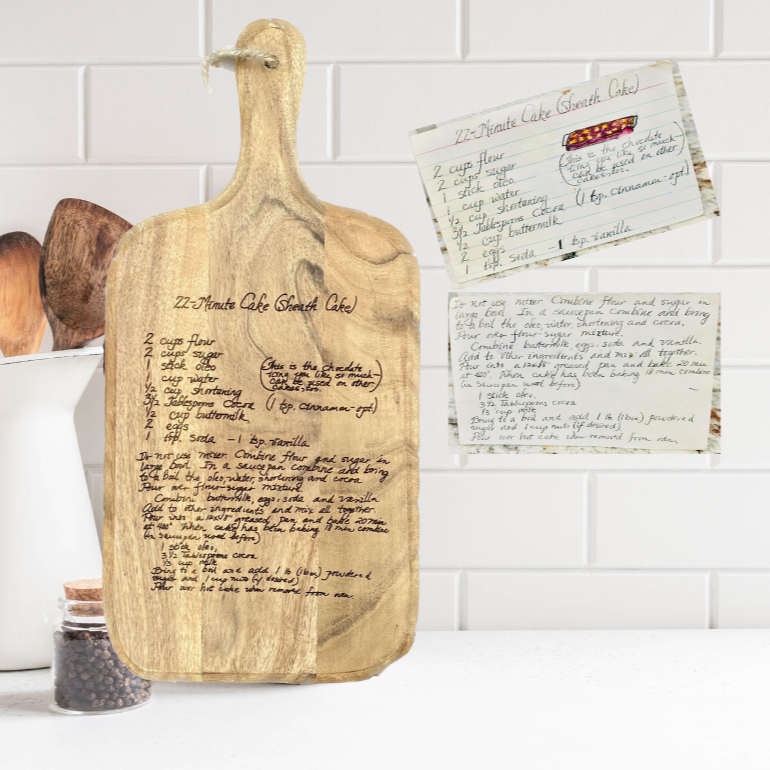 22-Minute Cake (Sheath Cake)
2 cups flour
2 cups sugar
1 stick oleo
1 cup water
1/2 cup shortening
3 1/2 Tablespoons Cocoa (1 tsp. Cinnamon-opt)
1/2 cup buttermilk
2 eggs
1 tsp. soda - 1 tsp. vanilla
(This is the chocolate
icing you like so much-
can be used on other
cakes, too.)
Do not use mixer. Combine flour and sugar in
large bowl. In a saucepan combine and bring
to a boil the oleo, water, shortening and cocoa.
Pour over flour-sugar mixture.
Combine buttermilk, eggs, soda and vanilla.
Add to other ingredients and mix all together.
Pour into a greased pan and bake 20 min
at 400°. When cake has been baking 18 min combine
(in saucepan used before)
1 stick oleo,
3 1/2 Tablespoons cocoa
1/3 cup milk
Bring to a boil and add 1 lb (1 box) powdered
sugar and 1 cup nuts (if desired)
Pour over hot cake when removed from oven.
22-Minute Cake (Sheath Cake)
2 cups flour
2 cups sugar
1 stick oleo
1 cup water
1/2 cup shortening
3 1/2 Tablespoons Cocoa (1 tsp. Cinnamon-opt)
1/2 cup buttermilk
2 eggs
1 tsp. soda - 1 tsp. vanilla
(This is the chocolate
icing you like so much-
can be used on other
cakes, too.)
Do not use mixer. Combine flour and sugar in
large bowl. In a saucepan combine and bring
to a boil the oleo, water, shortening and cocoa.
Pour over flour-sugar mixture.
Combine buttermilk, eggs, soda and vanilla.
Add to other ingredients and mix all together.
Pour into a greased pan and bake 20 min
at 400°. When cake has been baking 18 min combine
(in saucepan used before)
1 stick oleo,
3 1/2 Tablespoons cocoa
1/3 cup milk
Bring to a boil and add 1 lb (1 box) powdered
sugar and 1 cup nuts (if desired)
Pour over hot cake when removed from oven.